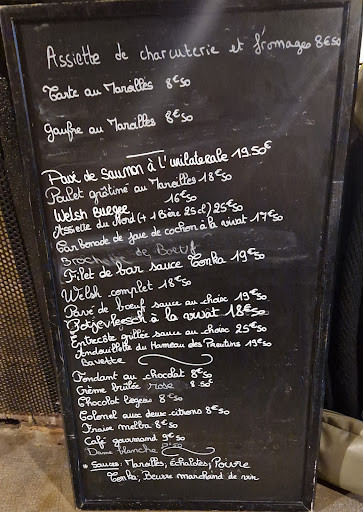 Assiette de charcuterie et fromages 8€50
Tarte au Maroilles 8€50
Gaufre au Maroilles 8€50
Pavé de saumon à l'unilaterale 19.50€
Poulet gratiné au Maroilles 18€50
Welsh Burger 16€50
Assiette du Nord (+ 1 Bière 25cl) 25€50
Carbonade de joue de cochon à la vivat 17€50
Brochette de Boeuf
Filet de bar sauce Tonka 19€50
Welsh complet 18€50
Pavé de bœuf sauce au choix 19€50
Potjevleesch à la vivat 18€50
Entrecôte grillée sauce au choix 25€50
Andouillette du Hameau des Pesutins 19€50
Bavette
Fondant au chocolat 8€50
Crème brûlée rose 8.50€
Chocolat liégeois 8€50
Colonel aux deux citrons 8€50
Fraise melba 8€50
Café gourmand 9€50
Dame blanche
* Sauces : Maroilles, Échalotes, Poivre
Tonka, Beurre marchand de vin